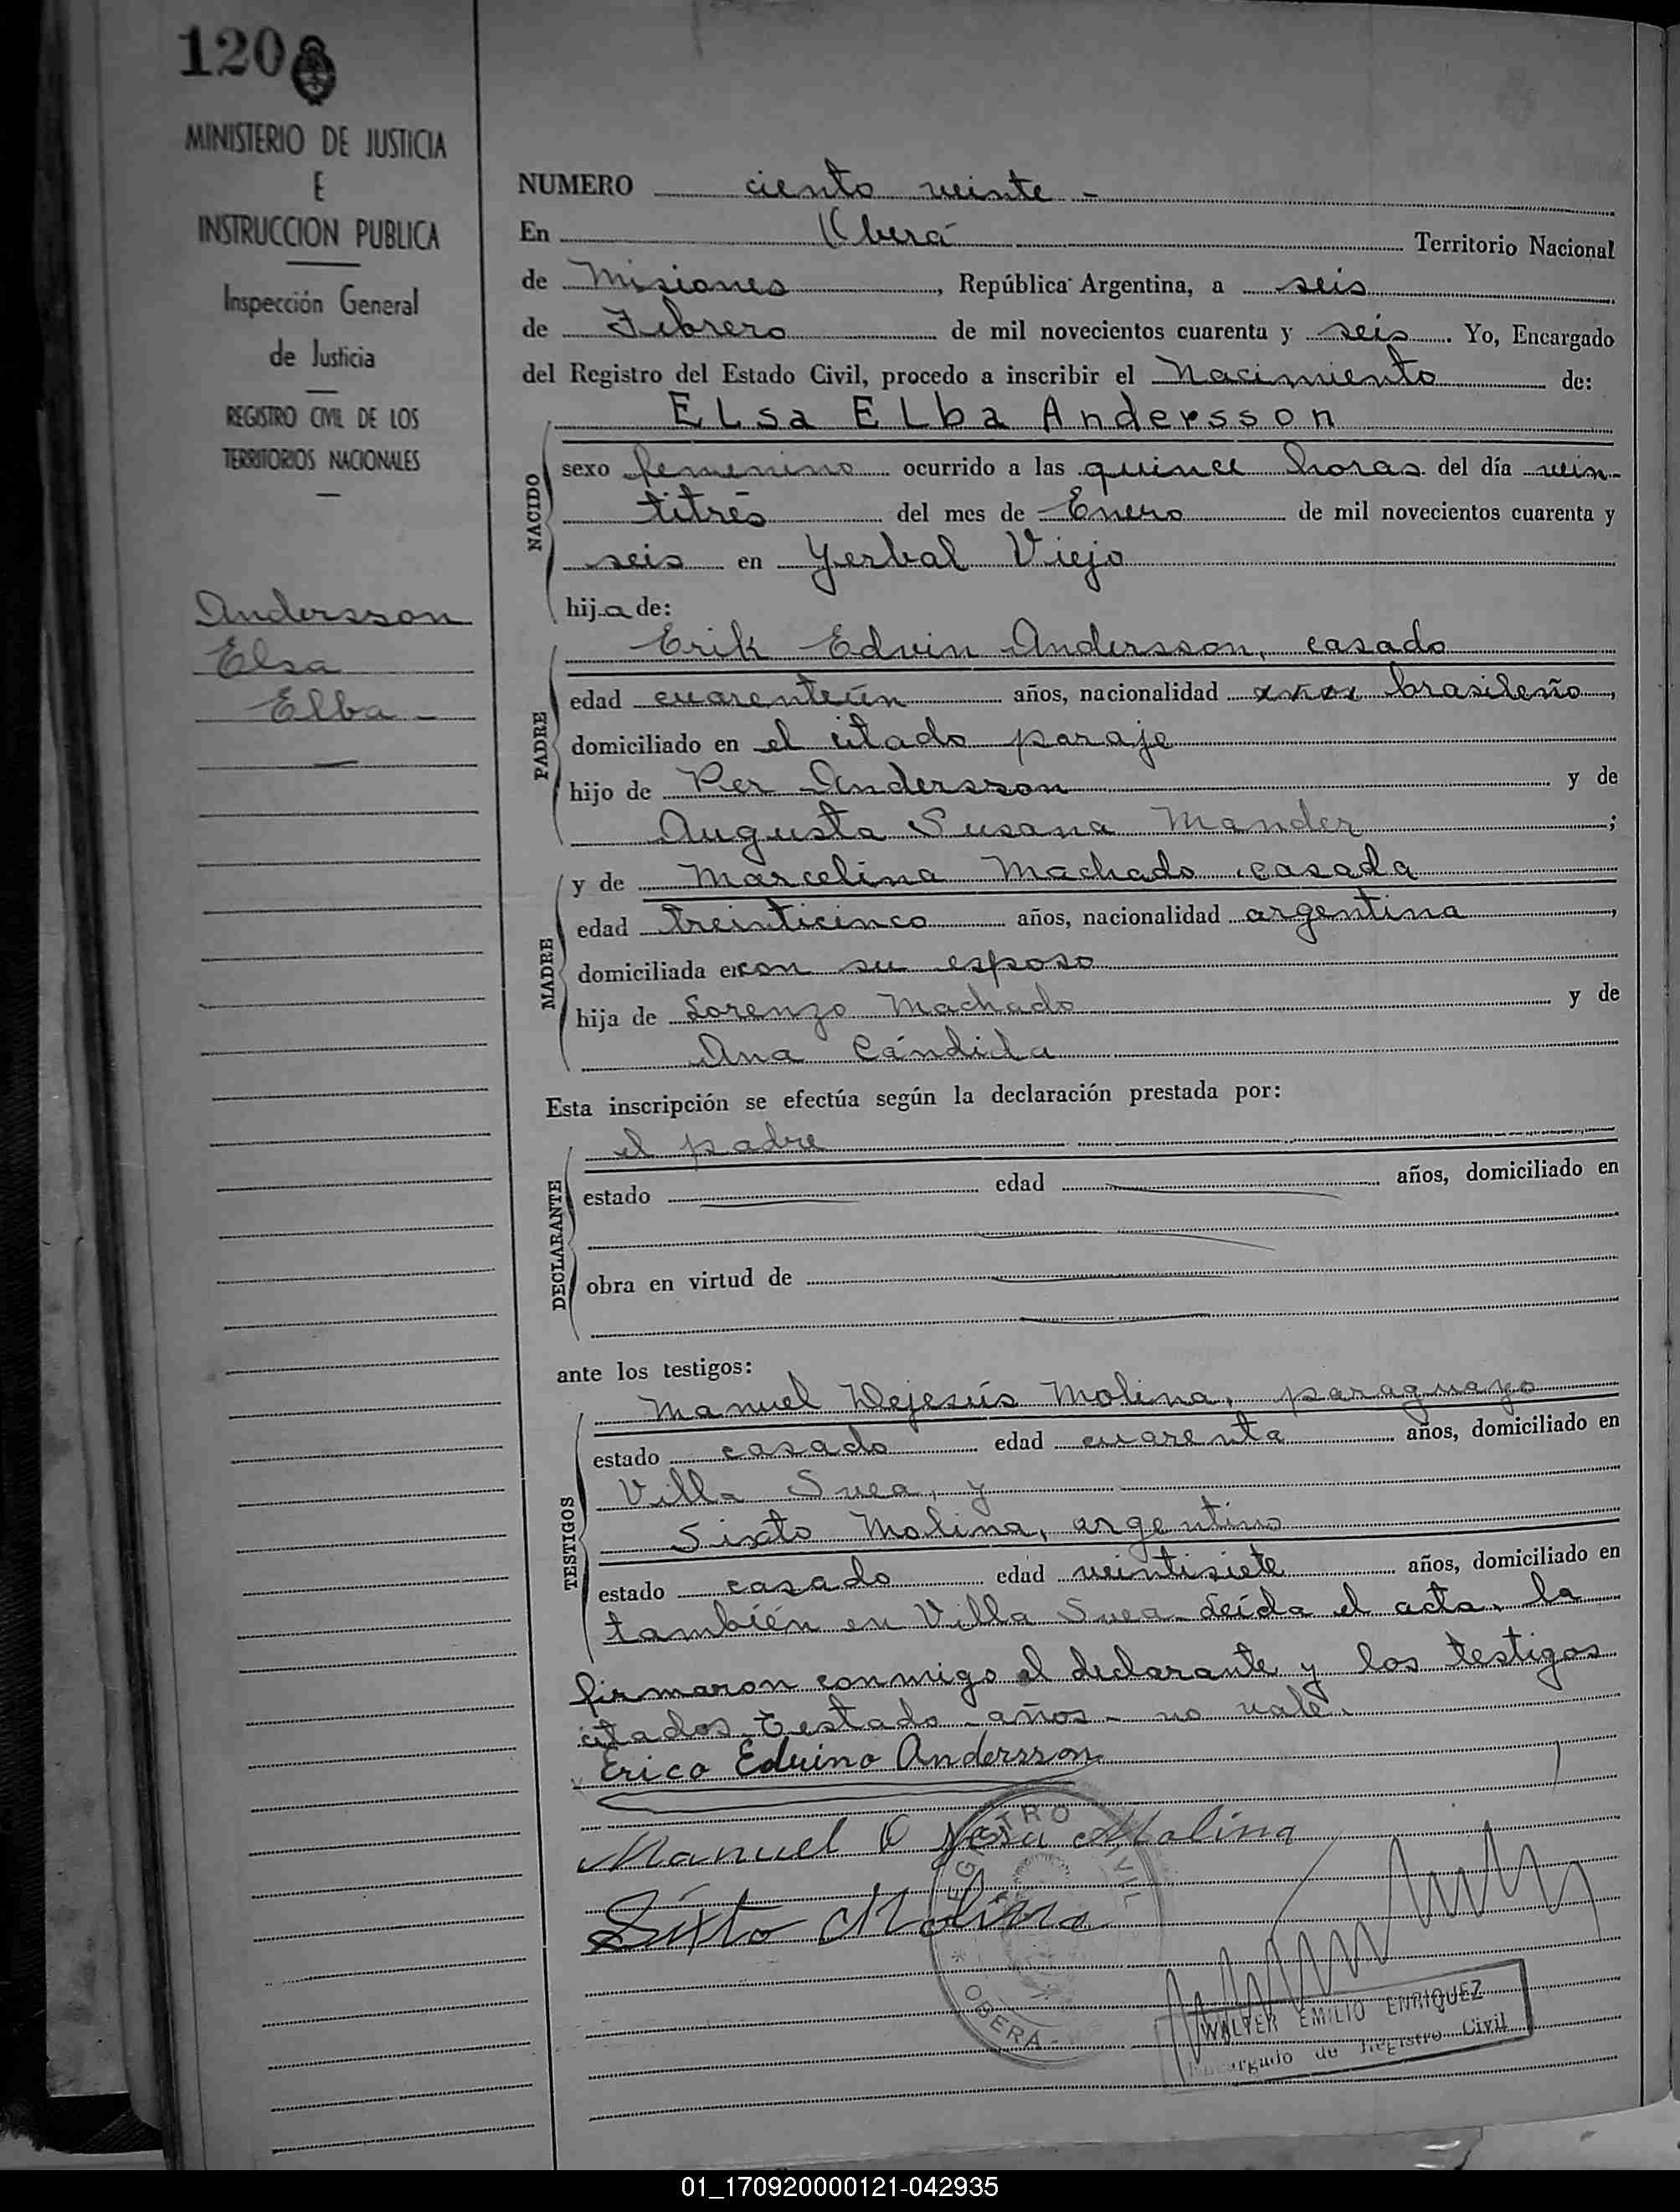 120
MINISTERIO DE JUSTICIA
E
INSTRUCCION PUBLICA
Inspección General
de Justicia
REGISTRO CIVIL DE LOS
TERRITORIOS NACIONALES
Andersson
Elsa
Elba -
NUMERO ciento veinte -
En Oberá Territorio Nacional
de Misiones, República Argentina, a seis
de Febrero de mil novecientos cuarenta y seis. Yo, Encargado
del Registro del Estado Civil, procedo a inscribir el Nacimiento de:
Elsa Elba Andersson
NACIDO
sexo femenino ocurrido a las quince horas del día vein-
titrés del mes de Enero de mil novecientos cuarenta y
seis en Yerbal Viejo
hija de:
PADRE
Erik Edvin Andersson, casado
edad cuarentiún años, nacionalidad brasileño,
domiciliado en el citado paraje
hijo de Per Andersson y de
Augusta Susana Mander;
MADRE
y de Marcelina Machado casada
edad treinticinco años, nacionalidad argentina,
domiciliada en con su esposo
hija de Lorenzo Machado y de
Ana Cándida
Esta inscripción se efectúa según la declaración prestada por:
DECLARANTE
el padre
estado edad años, domiciliado en
obra en virtud de
ante los testigos:
TESTIGOS
Manuel Dejesús Molina, paraguayo
estado casado edad cuarenta años, domiciliado en
Villa Svea, y
Sixto Molina, argentino
estado casado edad veintisiete años, domiciliado en
también en Villa Svea. Leída el acta, la
firmaron conmigo el declarante y los testigos
citados. Testado - años - no vale.
Erico Eduino Andersson
Manuel D Molina
Sixto Molina
REGISTRO CIVIL
* OBERA -
WALTER EMILIO ENRIQUEZ
Encargado de Registro Civil
01_170920000121-042935